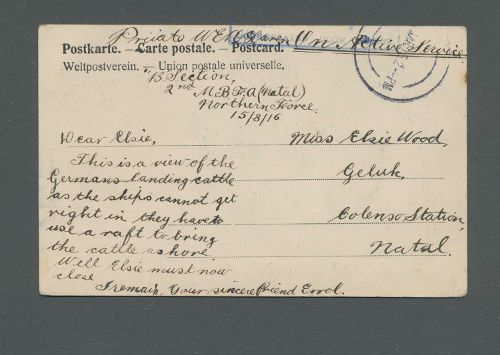 Private W.E.A. On Active Service
Postkarte. — Carte postale. — Postcard.
Weltpostverein. — Union postale universelle.
"B Section,
2nd M.B.F.A (Natal)
Northern Force.
15/8/16
Dear Elsie,
This is a view of the
Germans landing cattle
as the ships cannot get
right in they have to
use a raft to bring
the cattle ashore.
Well Elsie must now
close
I remain, Your sincere friend Errol.
Miss Elsie Wood,
Geluk,
Colenso Station,
Natal.